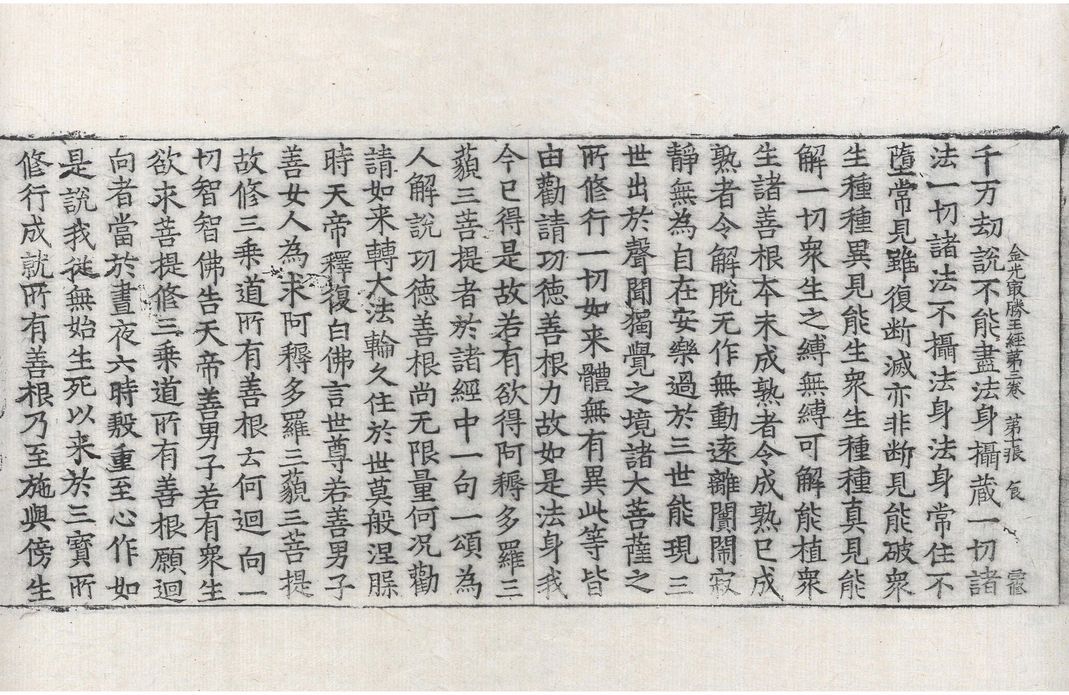 金光冣勝王經第三卷 第十張 食
千万劫說不能盡法身攝蔵一切諸
法一切諸法不攝法身法身常住不
墮常見雖復断滅亦非断見能破衆
生種種異見能生衆生種種真見能
解一切衆生之縛無縛可解能植衆
生諸善根本未成熟者令成熟已成
熟者令解脫无作無動遠離闤閙寂
靜無為自在安樂過於三世能現三
世出於聲聞獨覺之境諸大菩薩之
所修行一切如来體無有異此等皆
由勸請功徳善根力故如是法身我
今已得是故若有欲得阿耨多羅三
藐三菩提者於諸經中一句一頌為
人解說功徳善根尚无限量何况勸
請如来轉大法輪久住於世莫般涅槃
時天帝釋復白佛言世尊若善男子
善女人為求阿耨多羅三藐三菩提
故修三乗道所有善根云何迴向一
切智智佛告天帝善男子若有衆生
欲求菩提修三乗道所有善根願迴
向者當於晝夜六時慇重至心作如
是說我從無始生死以来於三寶所
修行成就所有善根乃至施與傍生